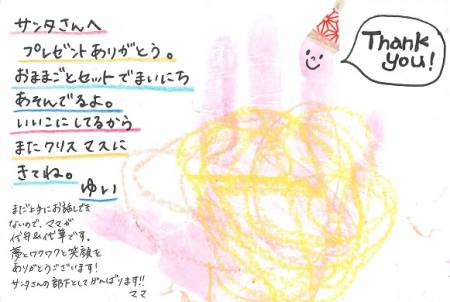 サンタさんへ
プレゼントありがとう。
おままごとセットでまいにち
あそんでるよ。
いいこにしてるから
またクリスマスに
きてね。
ゆい
まだ上手にお話しでき
ないので、ママが
代弁&代筆です。
夢とワクワクと笑顔を
ありがとうございます!
サンタさんの部下としてがんばります!!
ママ
Thank
you!